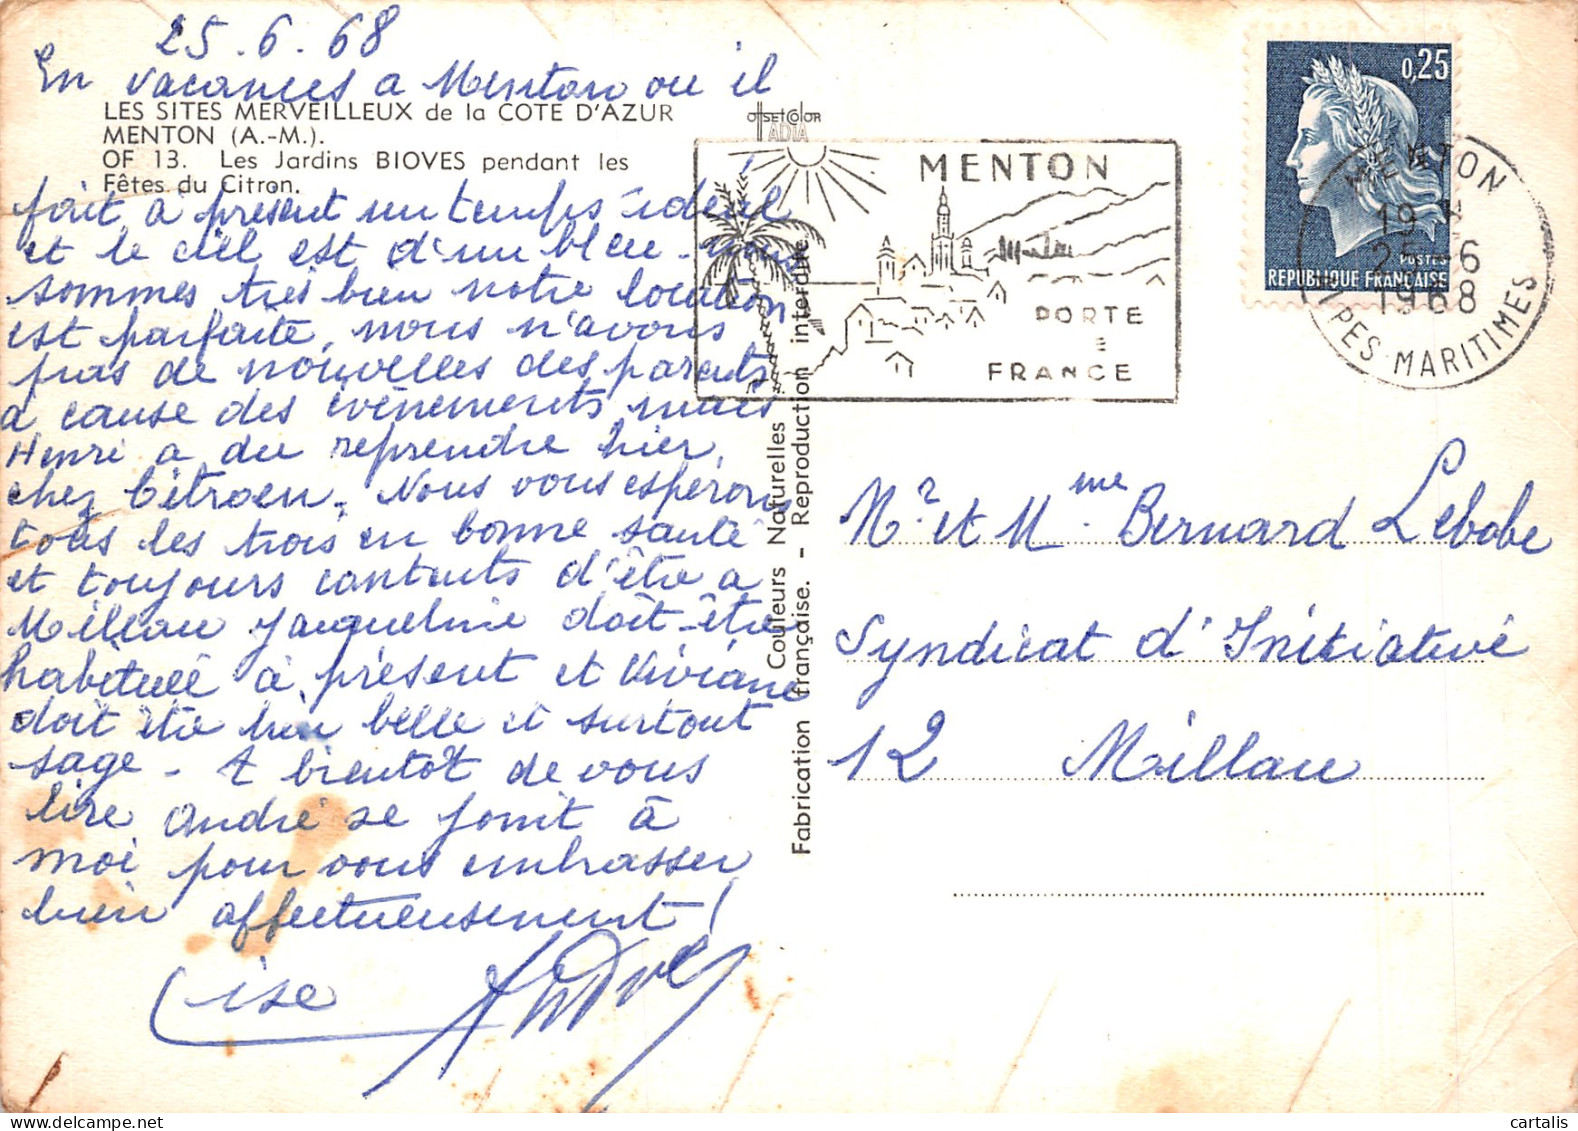 25.6.68
En vacances a Menton ou il
LES SITES MERVEILLEUX de la COTE D'AZUR
MENTON (A.-M.).
OF 13. Les Jardins BIOVES pendant les
Fêtes du Citron.
fait à présent un temps idéal
et le ciel est d'un bleu - nous
sommes très bien notre location
est parfaite, nous n'avons
pas de nouvelles des parents
a cause des évènements mais
Henri a du reprendre hier
chez Citroen. Nous vous espérons
tous les trois en bonne santé
et toujours contents d'être a
Millau Jacqueline doit-être
habituée à présent et Viviane
doit être bien belle et surtout
sage - A bientôt de vous
lire André se joint à
moi pour vous embrasser
bien affectueusement!
Lise André
OFFSETCOLOR
ADIA
MENTON
PORTE
FRANCE
Fabrication française. - Reproduction interdite
Couleurs Naturelles
0,25
POSTES
REPUBLIQUE FRANÇAISE
MENTON
19 H
25-6
1968
ALPES-MARITIMES
Mr et Mme Bernard Lebobe
Syndicat d'Initiative
12 Millau
cartalis